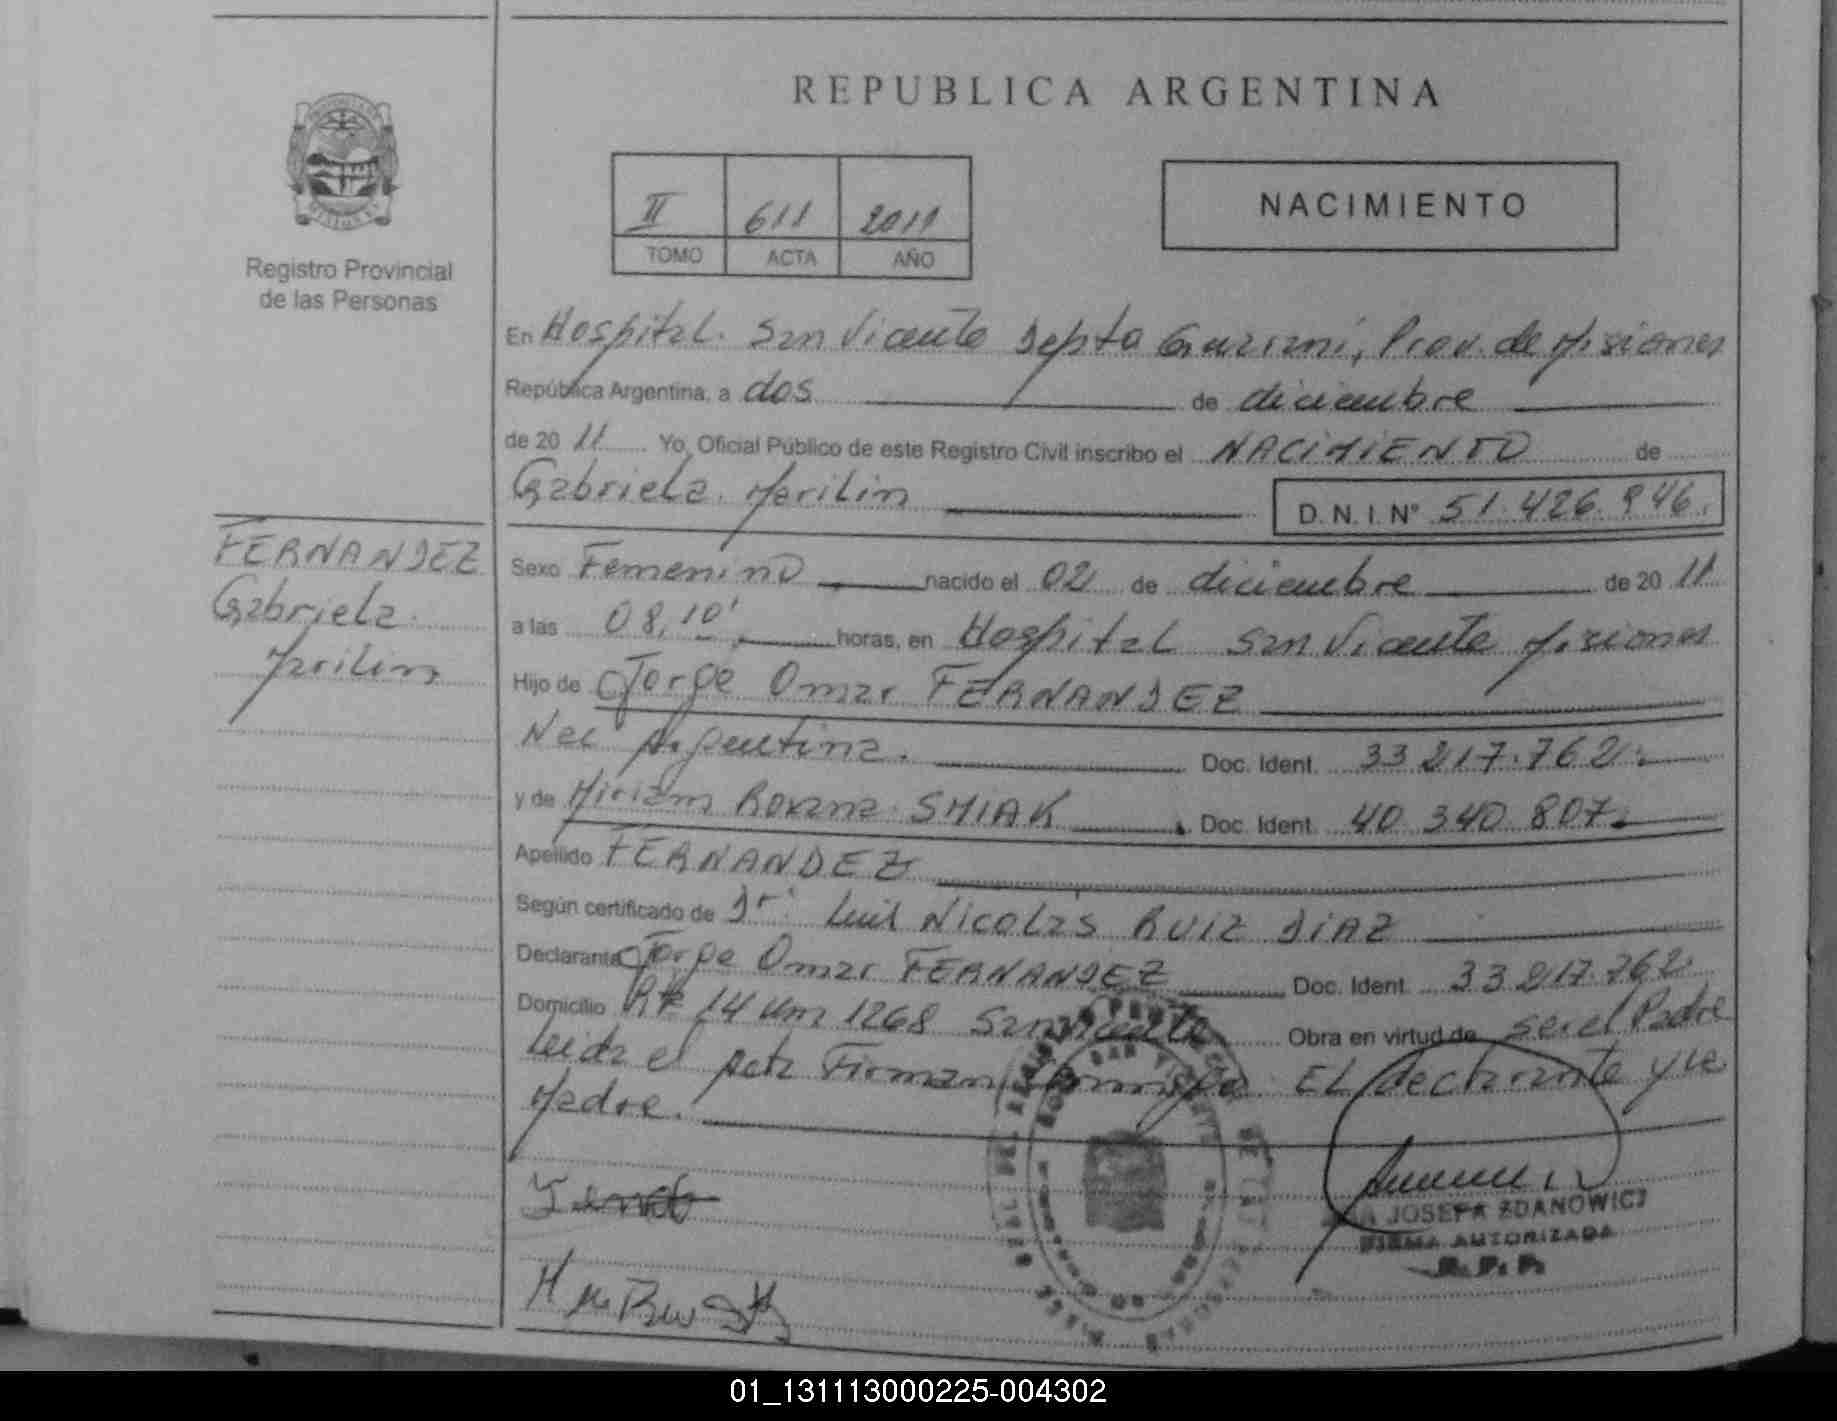 REPUBLICA ARGENTINA
II 611 2011
TOMO ACTA AÑO
NACIMIENTO
Registro Provincial
de las Personas
FERNANDEZ
Gabriela
Marilin
En Hospital San Vicente Depto Guarani, Prov. de Misiones
República Argentina, a dos de diciembre
de 20 11 Yo, Oficial Público de este Registro Civil inscribo el NACIMIENTO de
Gabriela Marilin D.N.I. Nº 51.426.946.
Sexo Femenino nacido el 02 de diciembre de 20 11
a las 08,10' horas, en Hospital San Vicente Misiones
Hijo de Jorge Omar FERNANDEZ
Nac Argentina. Doc. Ident. 33 217.762.
y de Miriam Roxana SMIAK Doc. Ident. 40 340 807.
Apellido FERNANDEZ
Según certificado de Dr. Luis Nicolas RUIZ DIAZ
Declarante Jorge Omar FERNANDEZ Doc. Ident. 33 217.762
Domicilio Rta 14 Km 1268 San Vicente Obra en virtud de ser el Padre
Leida el Acta Firman conmigo EL declarante y la
Madre.
JOSEFA ZDANOWICZ
FIRMA AUTORIZADA
R. P. P.
01_131113000225-004302